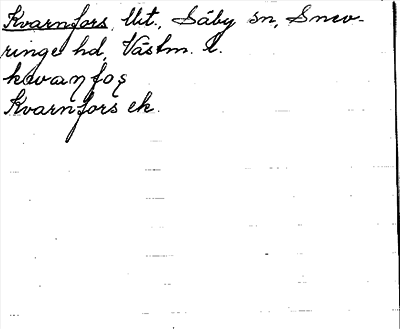 Kvarnfors, llit., Säby sn, Snev-
ringe hd, Västm. l.
kvaɳfoʂ
Kvarnfors ek.